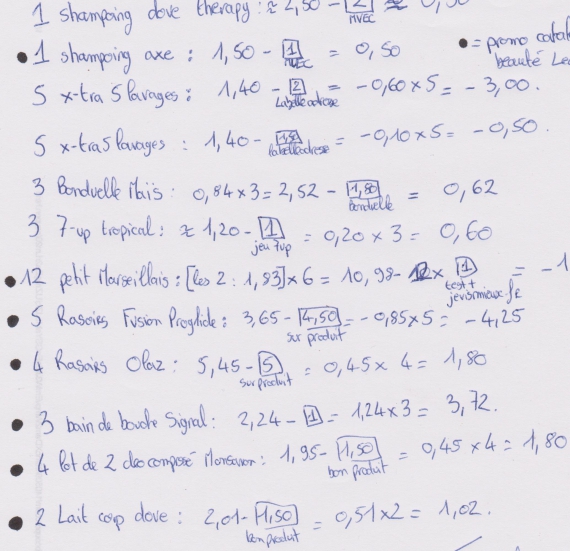 1 shampoing dove therapy : ≈ 2,50 - [2] ≈ 0,50
MVEC
● 1 shampoing axe : 1,50 - [1] = 0,50
MVEC
● = promo catal
beauté Lec
5 x-tra 5 lavages : 1,40 - [2] = -0,60 x 5 = - 3,00.
Labelleadresse
5 x-tra 5 lavages : 1,40 - [1,50] = -0,10 x 5 = -0,50.
labelleadresse
3 Bonduelle Maïs : 0,84 x 3 = 2,52 - [1,80] = 0,62
bonduelle
3 7-up tropical : ≈ 1,20 - [1] = 0,20 x 3 = 0,60
jeu 7up
● 12 petit Marseillais : [les 2 : 1,83] x 6 = 10,98 - 12 x [1] = -1
test +
jevismieux.fr
● 5 Rasoirs Fusion Proglide : 3,65 - [4,50] = -0,85 x 5 = -4,25
sur produit
● 4 Rasoirs Olaz : 5,45 - [5] = 0,45 x 4 = 1,80
sur produit
● 3 bain de bouche Signal : 2,24 - [1] = 1,24 x 3 = 3,72.
● 4 lot de 2 deo compsé Monsavon : 1,95 - [1,50] = 0,45 x 4 = 1,80
bon produit
● 2 Lait corp dove : 2,01 - [1,50] = 0,51 x 2 = 1,02.
bon produit